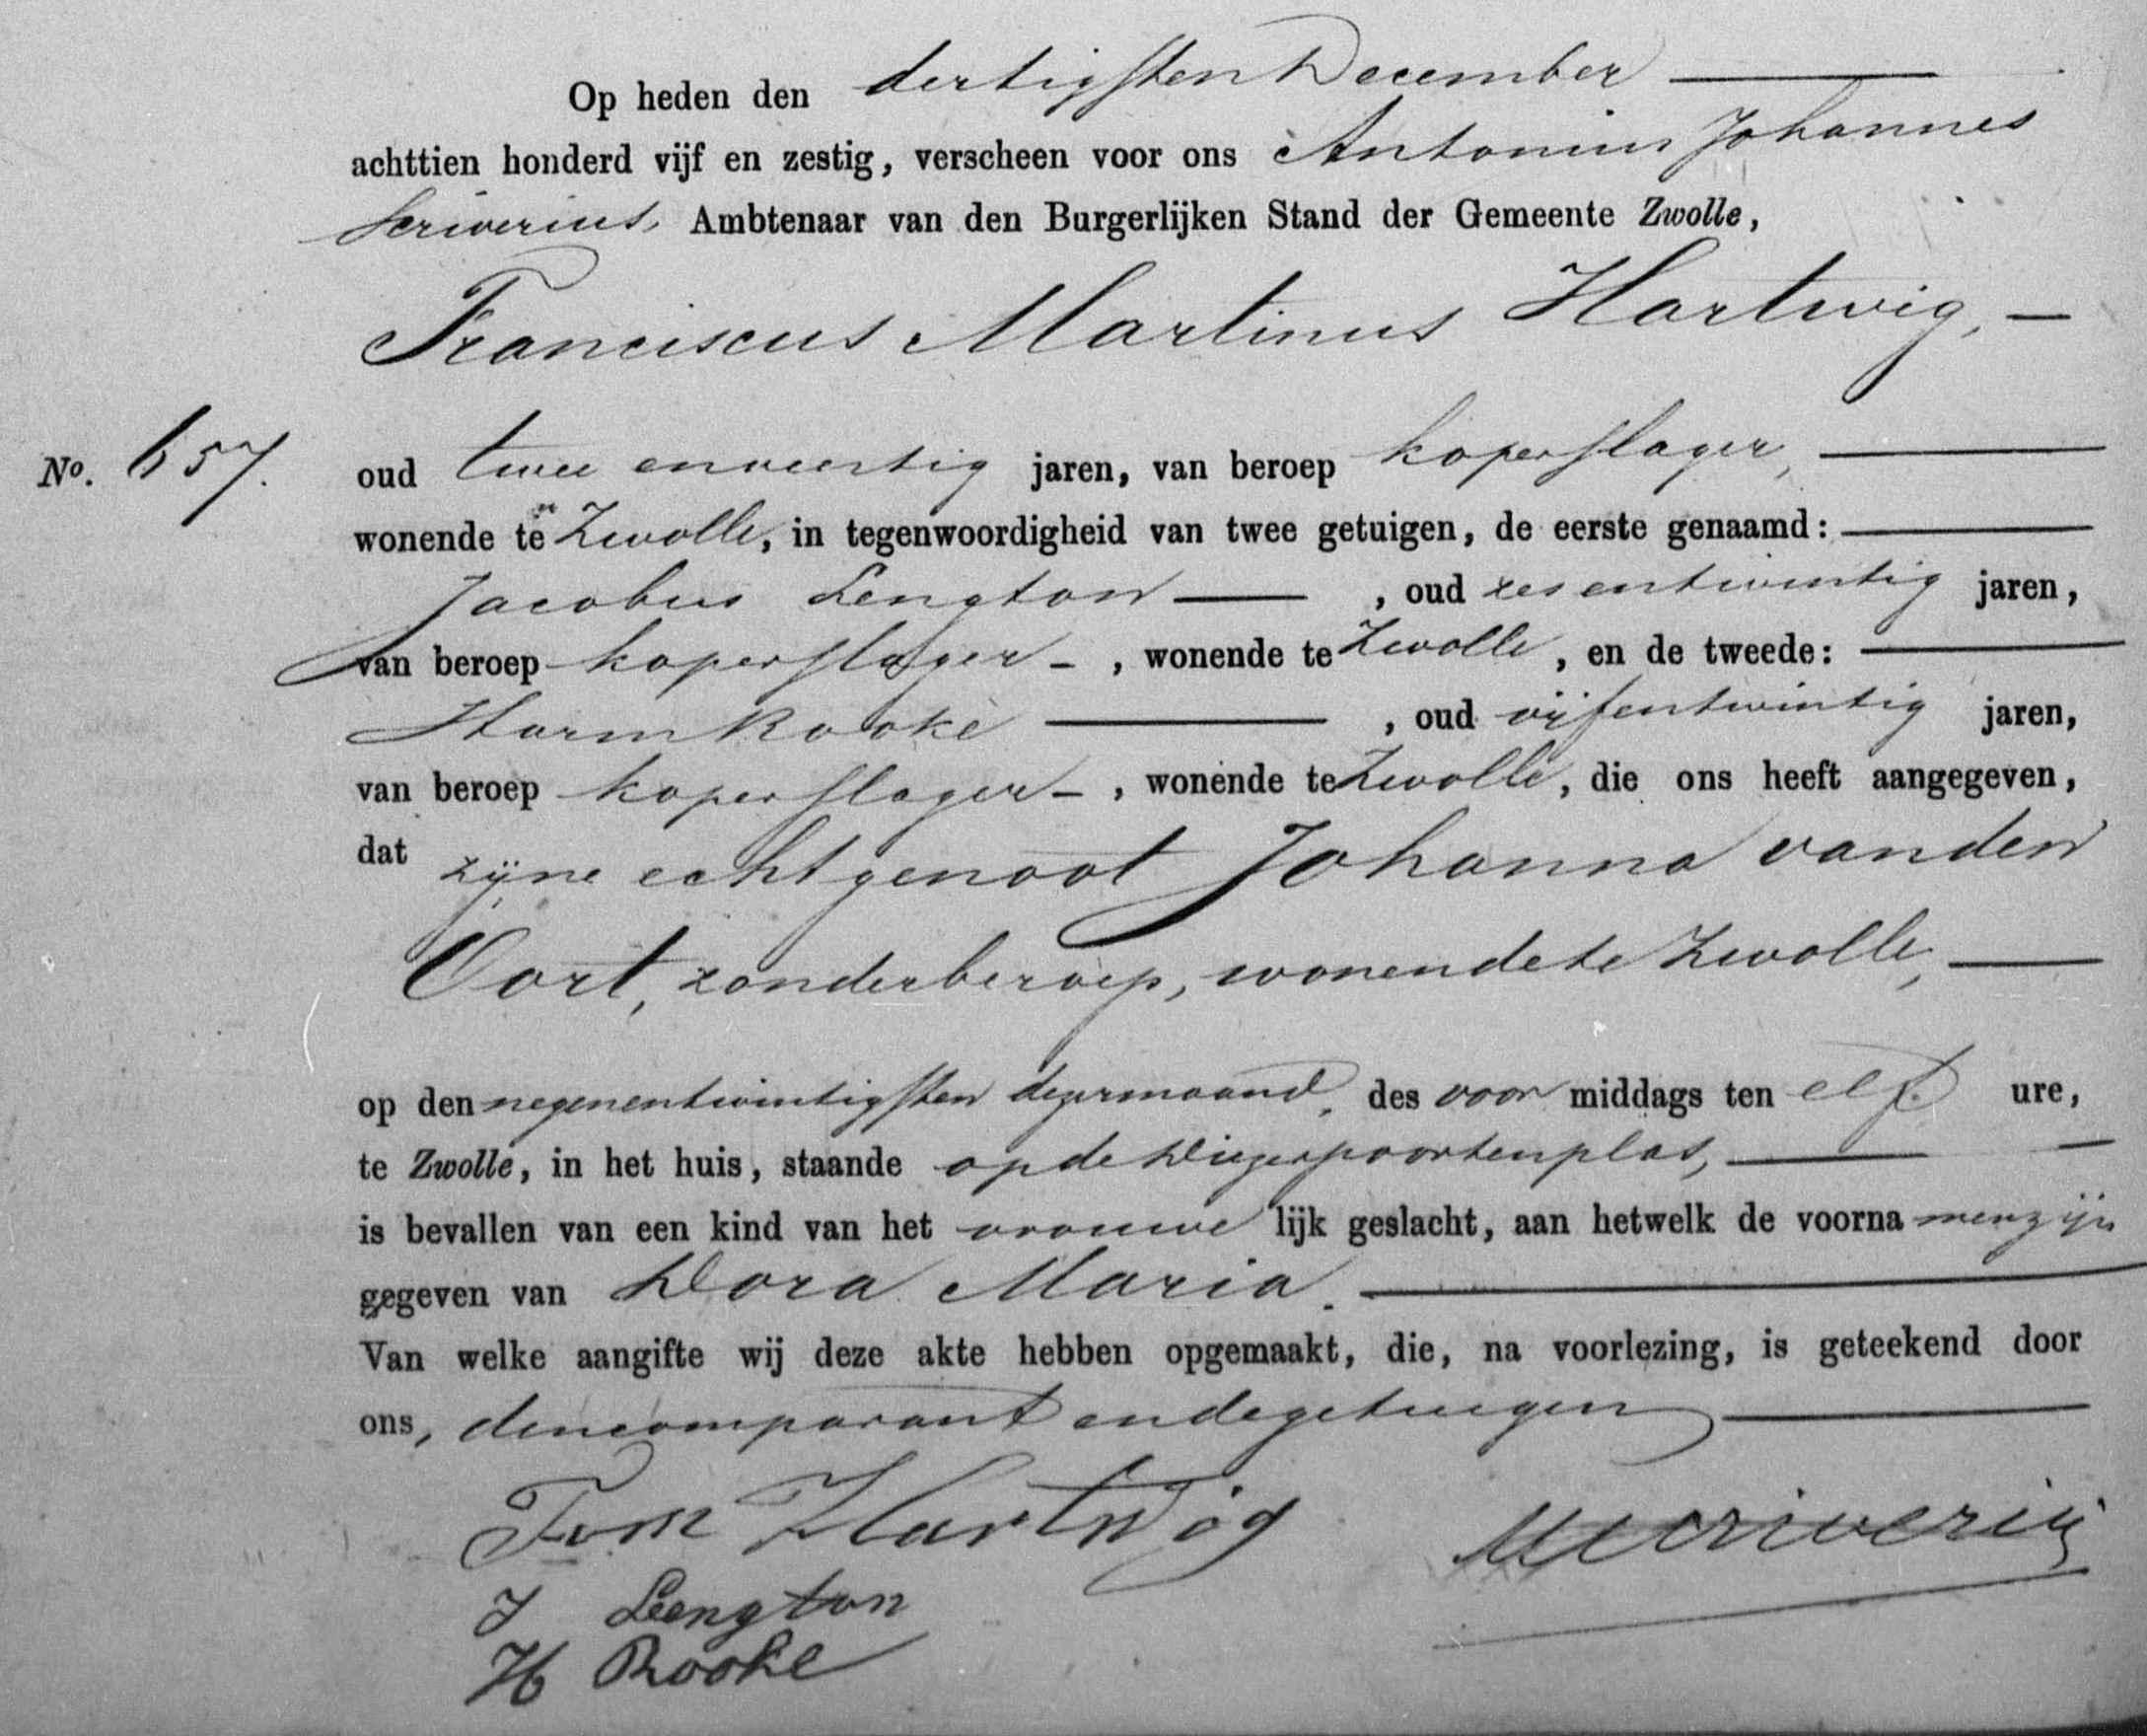 Op heden den dertigsten December
achttien honderd vijf en zestig, verscheen voor ons Antonius Johannes
Scriverius, Ambtenaar van den Burgerlijken Stand der Gemeente Zwolle,
Franciscus Martinus Hartwig,
No. 657.
oud twee en veertig jaren, van beroep koperslager,
wonende te Zwolle, in tegenwoordigheid van twee getuigen, de eerste genaamd:
Jacobus Lengton, oud zes en twintig jaren,
van beroep koperslager, wonende te Zwolle, en de tweede:
Harm Rooke, oud vijf en twintig jaren,
van beroep koperslager, wonende te Zwolle, die ons heeft aangegeven,
dat zijne echtgenoot Johanna van den
Oort, zonder beroep, wonende te Zwolle,
op den negenentwintigsten dezer maand, des voor middags ten elf ure,
te Zwolle, in het huis, staande op de Diezerpoortenplas,
is bevallen van een kind van het vrouwe lijk geslacht, aan hetwelk de voorna men zijn
gegeven van Dora Maria.
Van welke aangifte wij deze akte hebben opgemaakt, die, na voorlezing, is geteekend door
ons, den comparant en de getuigen
Hartwig Scriverius
J Lengton
H Rooke